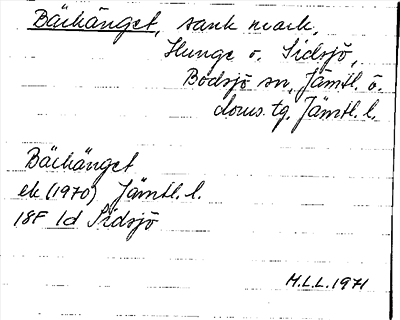 Bäckänget, sank mark,
Hunge o. Sidsjö,
Bodsjö sn, Jämtl. ö.
doms. tg. Jämtl. l.
Bäckänget
ek (1970) Jämtl. l.
18F 1d Sidsjö
M.L.L. 1971